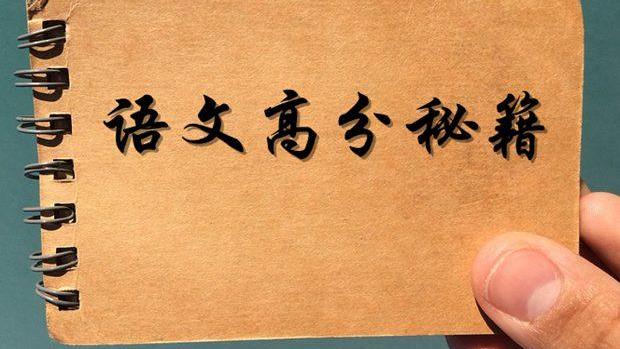 语文高分秘籍